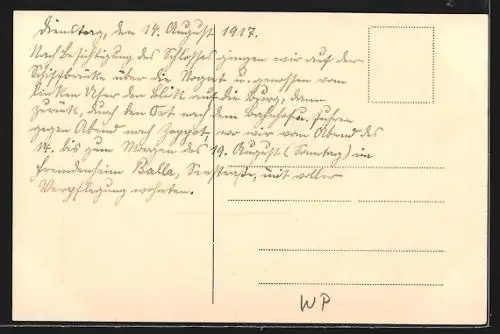 Dienstag, den 14. August 1917.
Nach Besichtigung des Schlosses gingen wir auf der
Schiffbrücke über die Nogat u. genossen vom
linken Ufer den Blick auf die Burg, dann
zurück, durch den Ort nach dem Bahnhof u. fuhren
gegen Abend nach Zoppot, wo wir vom Abend des
14. bis zum Morgen des 19. August (Sonntag) im
Fremdenheim Balla, Seestraße, mit voller
Verpflegung wohnten.
WP